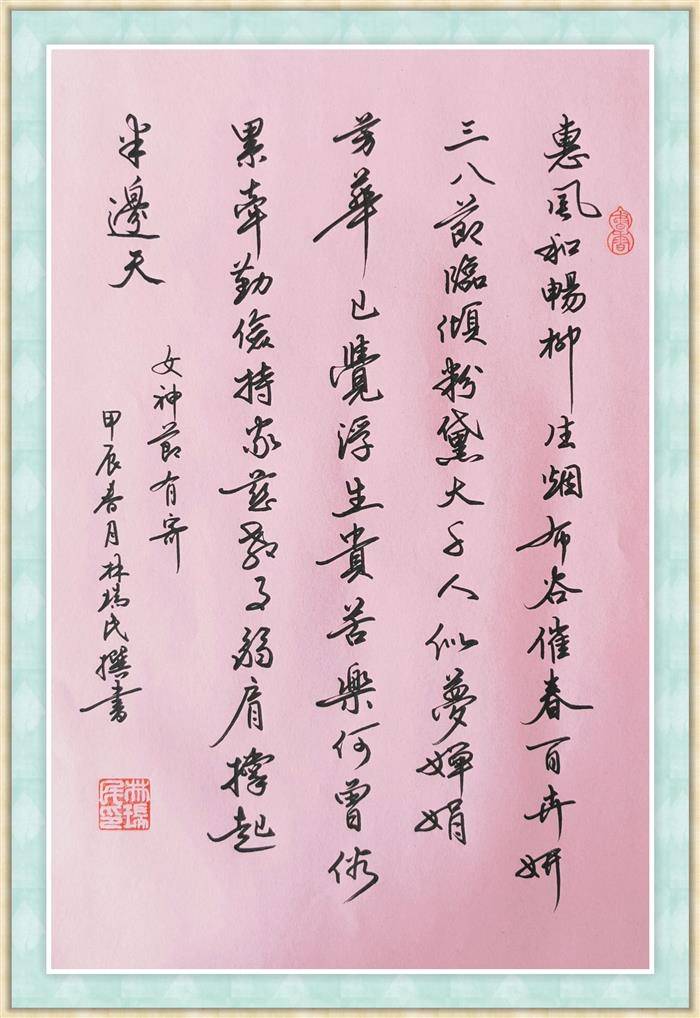 惠風和暢柳生烟布谷催春百卉妍
三八節臨傾粉黛大千人似夢嬋娟
芳華已覺浮生貴苦樂何曾俗
累牽勤儉持家慈教子弱肩撐起
半邊天
女神節有寄
甲辰春月林瑞民撰書
林瑞民印